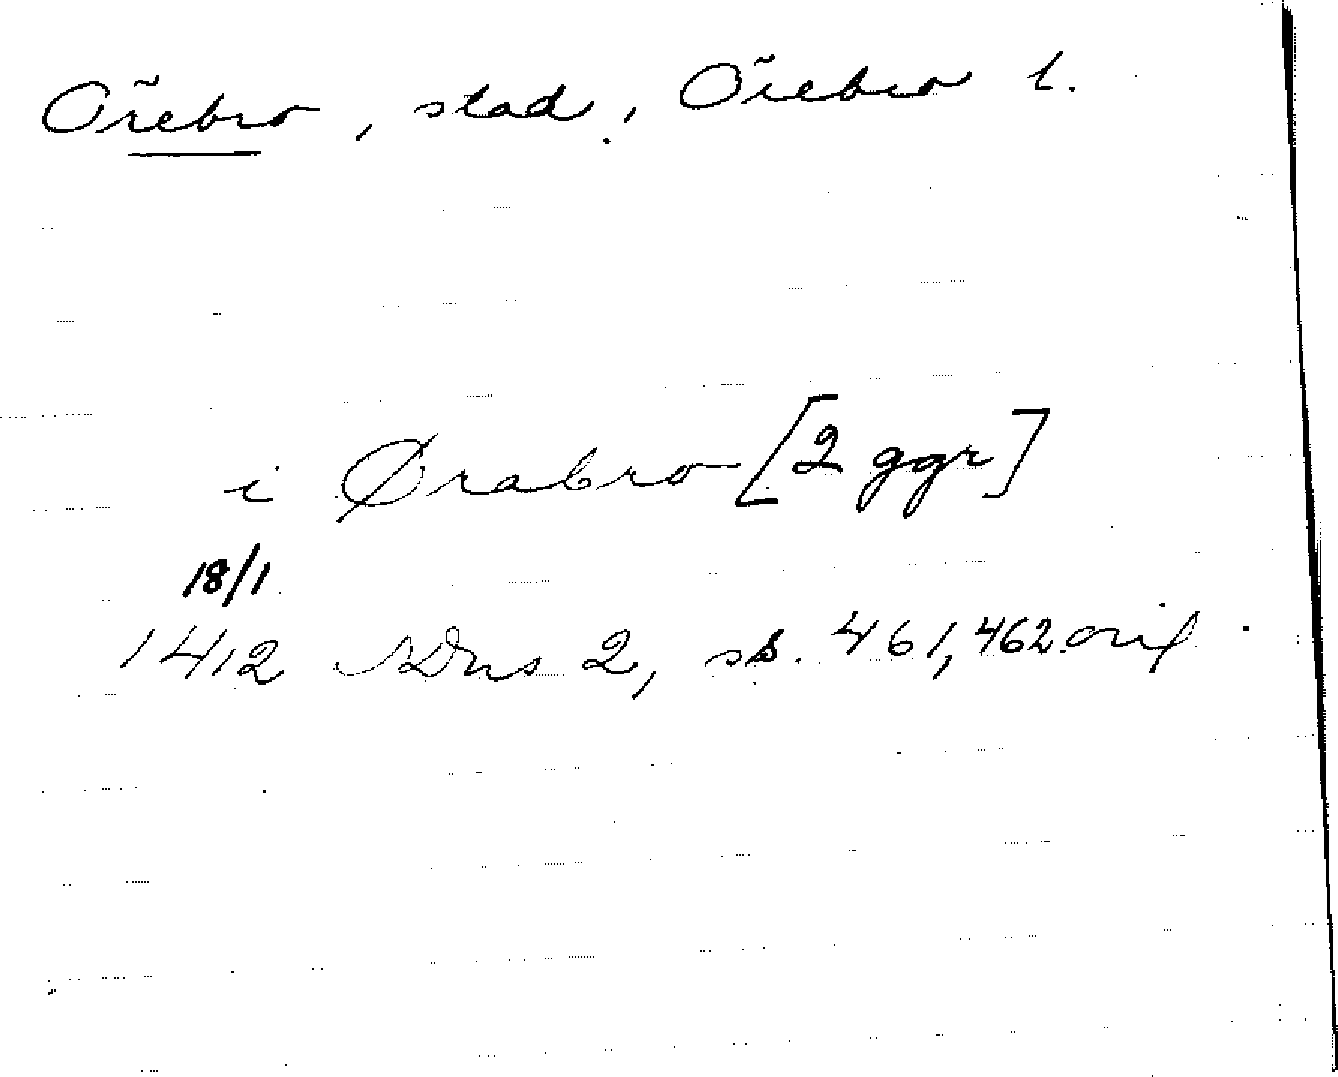 Örebro, stad, Örebro l.
i Ørabro [2 ggr]
18/1
1412 SDns 2, sb. 461, 462 orig.